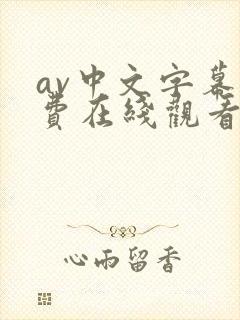 av中文字幕
費在綫觀看
心雨留香